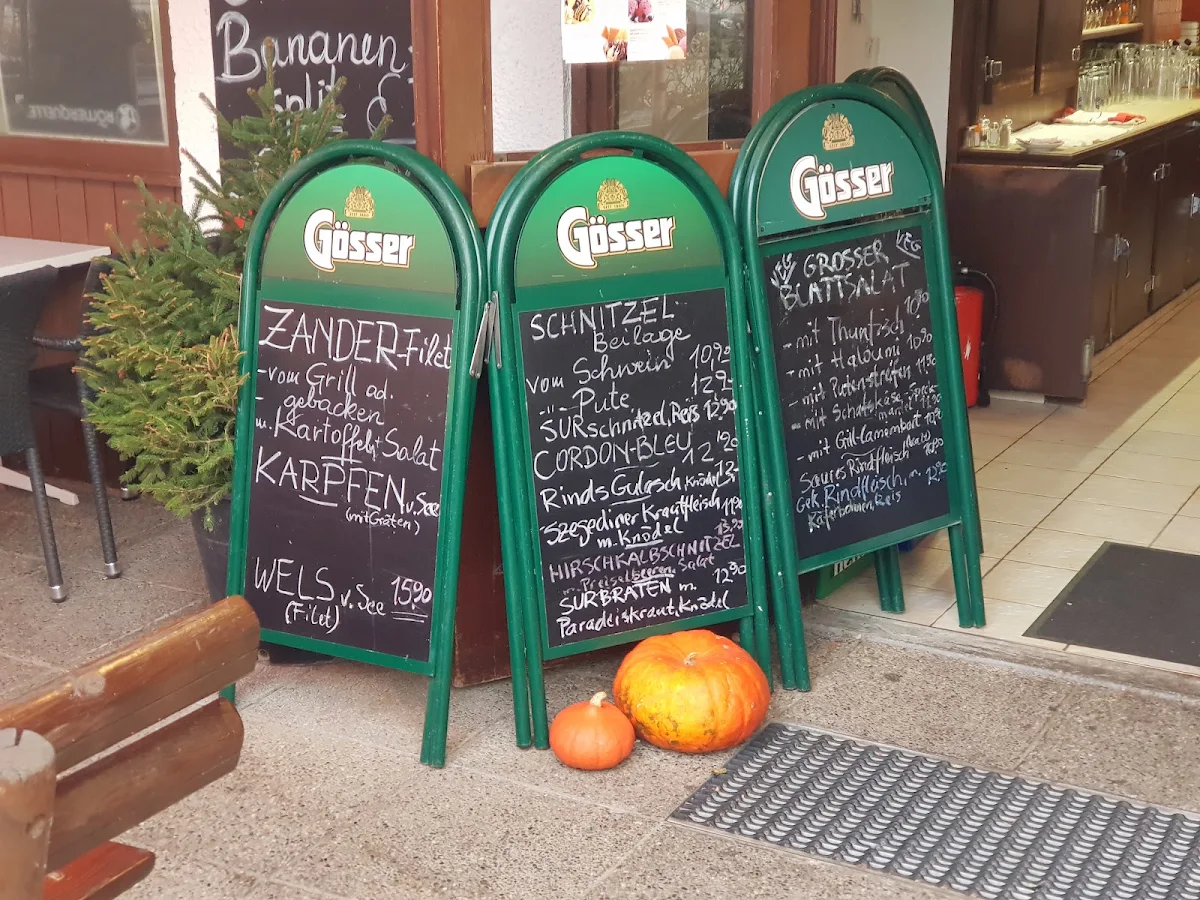 Bananen
Split &
RÖMERQUELLE
Gösser
ZANDER-Filet
-vom Grill od.
- gebacken
m. Kartoffeln, Salat
KARPFEN v. See
(mit Gräten)
WELS v. See 15,90
(Filet)
Gösser
SCHNITZEL-
Beilage
vom Schwein 10,90
-"- Pute 12,90
SURschnitzel, Reis 12,90
CORDON-BLEU 12,90
Rinds Gulasch Knödel
-Szegediner Krautfleisch, 11,90
m. Knödel
HIRSCHKALBSCHNITZEL 13,90
m. Preiselbeeren, Salat
SURBRATEN m. 12,90
Paradeiskraut, Knödel
Gösser
VEG GROSSER VEG
BLATTSALAT
- mit Thunfisch 10,90
- mit Haloumi 10,90
- mit Putenstreifen 11,90
- mit Schafskäse, Speck-
mantel
- mit Grill-Camembert 10,90
Saures Rindfleisch
Gek. Rindfleisch, m. 12,90
Käferbohnen, Reis